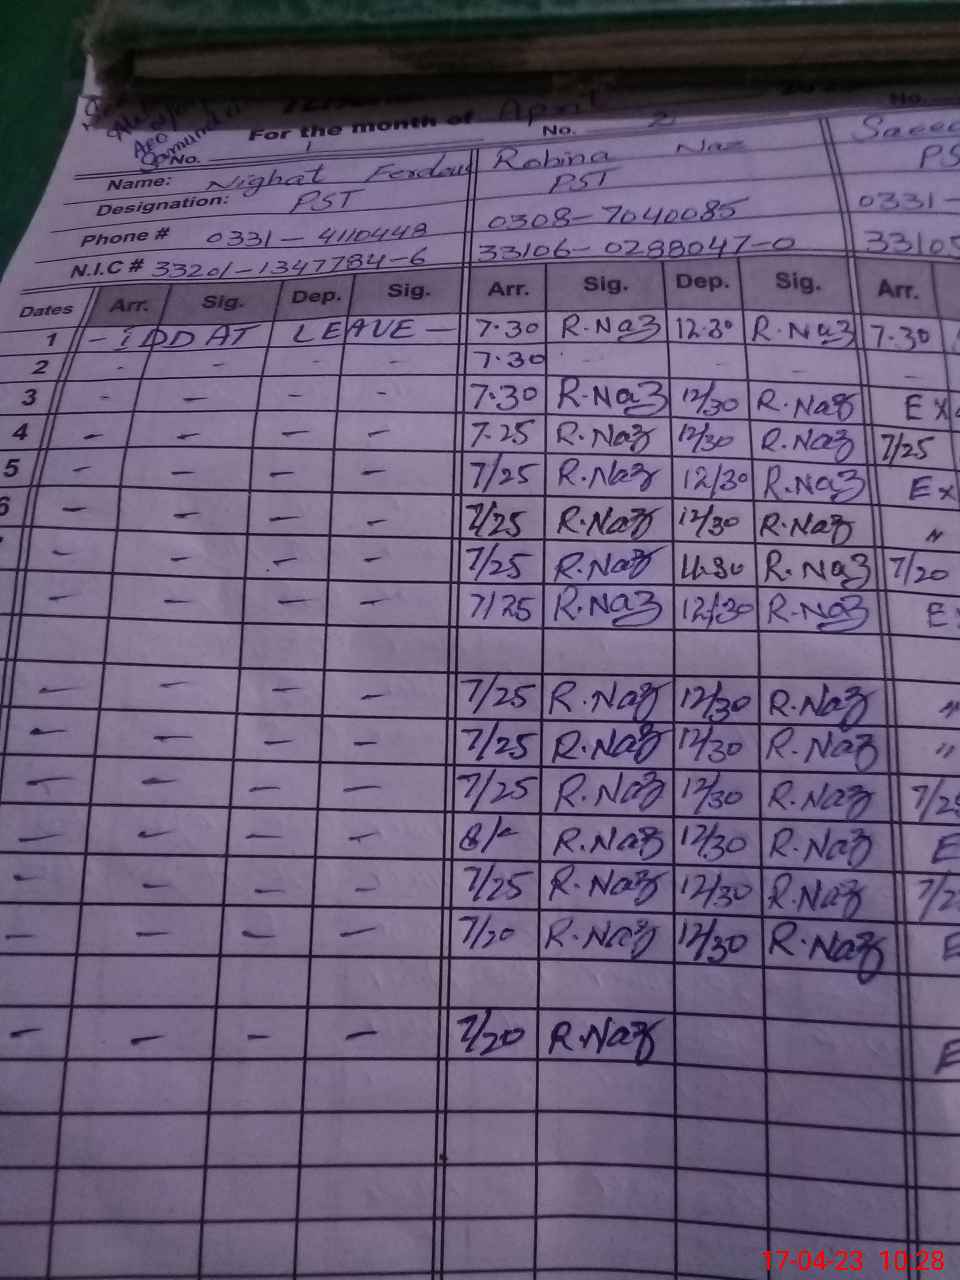 For the month of April
No. 1 No. 2 No.
Name: Nighat Ferdous Robina Naz Saeed
Designation: PST PST PS
Phone # 0331-4110448 0308-7040085 0331-
N.I.C # 33201-1347784-6 33106-0288047-0 33105
Dates Arr. Sig. Dep. Sig. Arr. Sig. Dep. Sig. Arr.
1 - iDDAT LEAVE - 7.30 R.Naz 12.30 R.Naz 7.30
2 - - - - 7.30 - - - -
3 - - - - 7.30 R.Naz 12/30 R.Naz Ex
4 - - - - 7.25 R.Naz 12/30 R.Naz 7/25
5 - - - - 7/25 R.Naz 12/30 R.Naz Ex
6 - - - - 7/25 R.Naz 12/30 R.Naz "
- - - - 7/25 R.Naz 11.30 R.Naz 7/20
- - - - 7/25 R.Naz 12/30 R.Naz E
- - - - 7/25 R.Naz 12/30 R.Naz "
- - - - 7/25 R.Naz 12/30 R.Naz "
- - - - 7/25 R.Naz 12/30 R.Naz 7/25
- - - - 8/- R.Naz 12/30 R.Naz E
- - - - 7/25 R.Naz 12/30 R.Naz 7/2
- - - - 7/20 R.Naz 12/30 R.Naz E
- - - - 7/20 R.Naz E
17-04-23 10:28